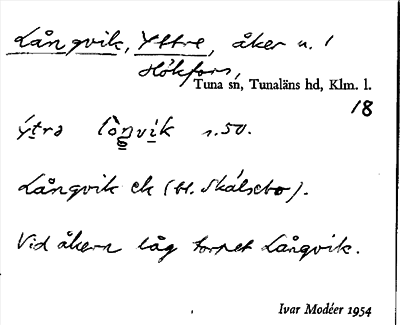 Långvik, Yttre, åker u. 1
Hökfors,
Tuna sn, Tunaläns hd, Klm. l.
18
ýtrə lòŋvik s.50.
Långvik ek (bl. Skälsebo).
Vid åkern låg torpet Långvik.
Ivar Modéer 1954